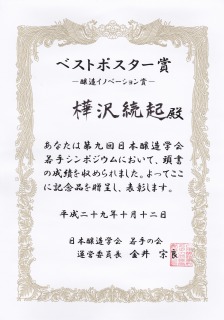 ベストポスター賞
―醸造イノベーション賞―
樺沢続起殿
あなたは第九回日本醸造学会
若手シンポジウムにおいて、頭書
の成績を収められました。よってここ
に記念品を贈呈し、表彰します。
平成二十九年十月十二日
日本醸造学会 若手の会
運営委員長 金井 宗良